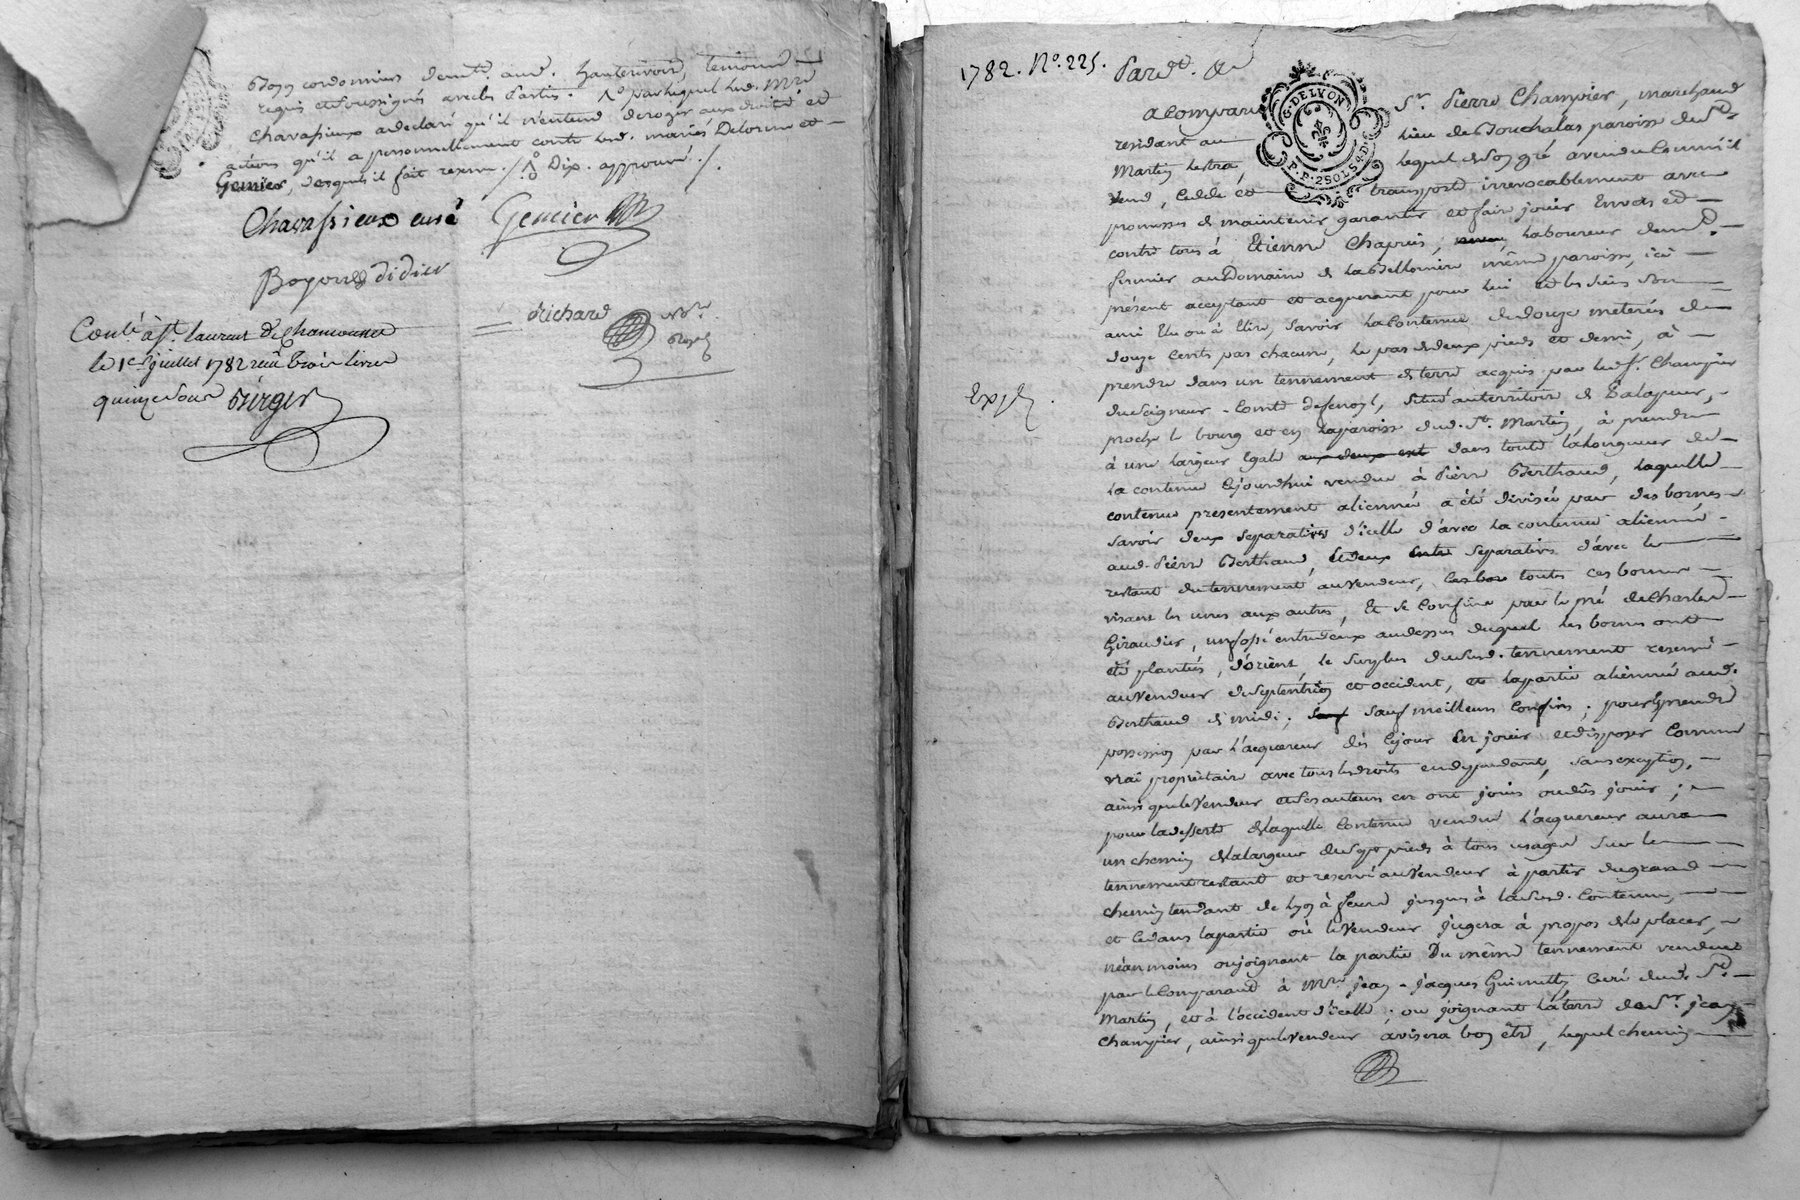 cordonnier demt. aud. hauterivoire, temoins
requis et soussignés avec les parties. par lequel led. Mre.
Chavassieux a declaré qu'il n'entend deroger aux droits et
actions qu'il a personnellement contre lesd. mariés Delorme et
Gemier, desquels il fait reserve. Dix. approuvé.
Chavassieux curé Gemier
didier
Richard
Conlé. à st. laurent de Chamousset
le 1er juillet 1782 reçu trois livres
quinze sous
1782. No. 225. Pardt. &
G. DE LYON
P.P. 2 SOLS 4 D.
a Comparu Sr. Pierre Champier, marchand
residant au lieu de paroisse de St.
Martin lestra lequel de son gré a vendu comme il
vend, Cedde et transporte irrevocablement avec
promesses de maintenir garantir et faire jouir Envers et
contre tous à Etienne Chapuis, laboureur demt.
fermier au Domaine de même paroisse, ici
présent acceptant et acquerant pour lui et les siens son
ami Elu ou à Elire, savoir la Contenue de douze meterés de
douze Cents pas chacune, le pas de deux pieds et demi, à
prendre dans un tennement de terre acquis par led. Sr. Champier
du seigneur Comte de fenoyl, situé au territoire de
Expé.
proche le bourg et en la paroisse dud. St. Martin, à prendre
à une largeur Egale aux deux ext dans toute la longueur de
la contenue cejourdhui vendue à Pierre Berthaud, laquelle
contenue presentement alienneé a été divisée par des bornes
savoir deux separatives d'icelle d'avec la contenue alienneé
aud. Pierre Berthaud, et deux separatives d'avec le
restant du tennement au vendeur, toutes ces bornes
visant les unes aux autres, Et se Confine par le pré de Charles
Giraudier, entredeux au dessus duquel les bornes ont
été plantées, d'orient, le surplus dud. tennement reservé
au vendeur de septentrion et occident, et la partie alienneé aud.
Berthaud de midi; sauf meilleurs confins; pour prendre
possession par l'acquereur dès cejour En jouir et disposer Comme
vrai propriétaire avec tous les droits en dependant, sans exception,
ainsi que le vendeur et ses auteurs en ont joui ou dûs jouir;
pour la desserte de laquelle Contenue vendue l'acquereur aura
un chemin de la largeur de sept pieds à tous usages sur le
tennement restant et reservé au Vendeur à partir du grand
chemin tendant de lyon à feurs jusques à la susd. Contenue,
et ce dans la partie où le vendeur jugera à propos de le placer,
néanmoins en joignant la partie Du même tennement vendue
par le Comparant à Mre. jean-jacques Guimet, Curé dud. St.
Martin, et à l'occident d'icelle; ou joignant la terre de Sr. jean
Champier, ainsi que le vendeur avisera bon être, lequel chemin